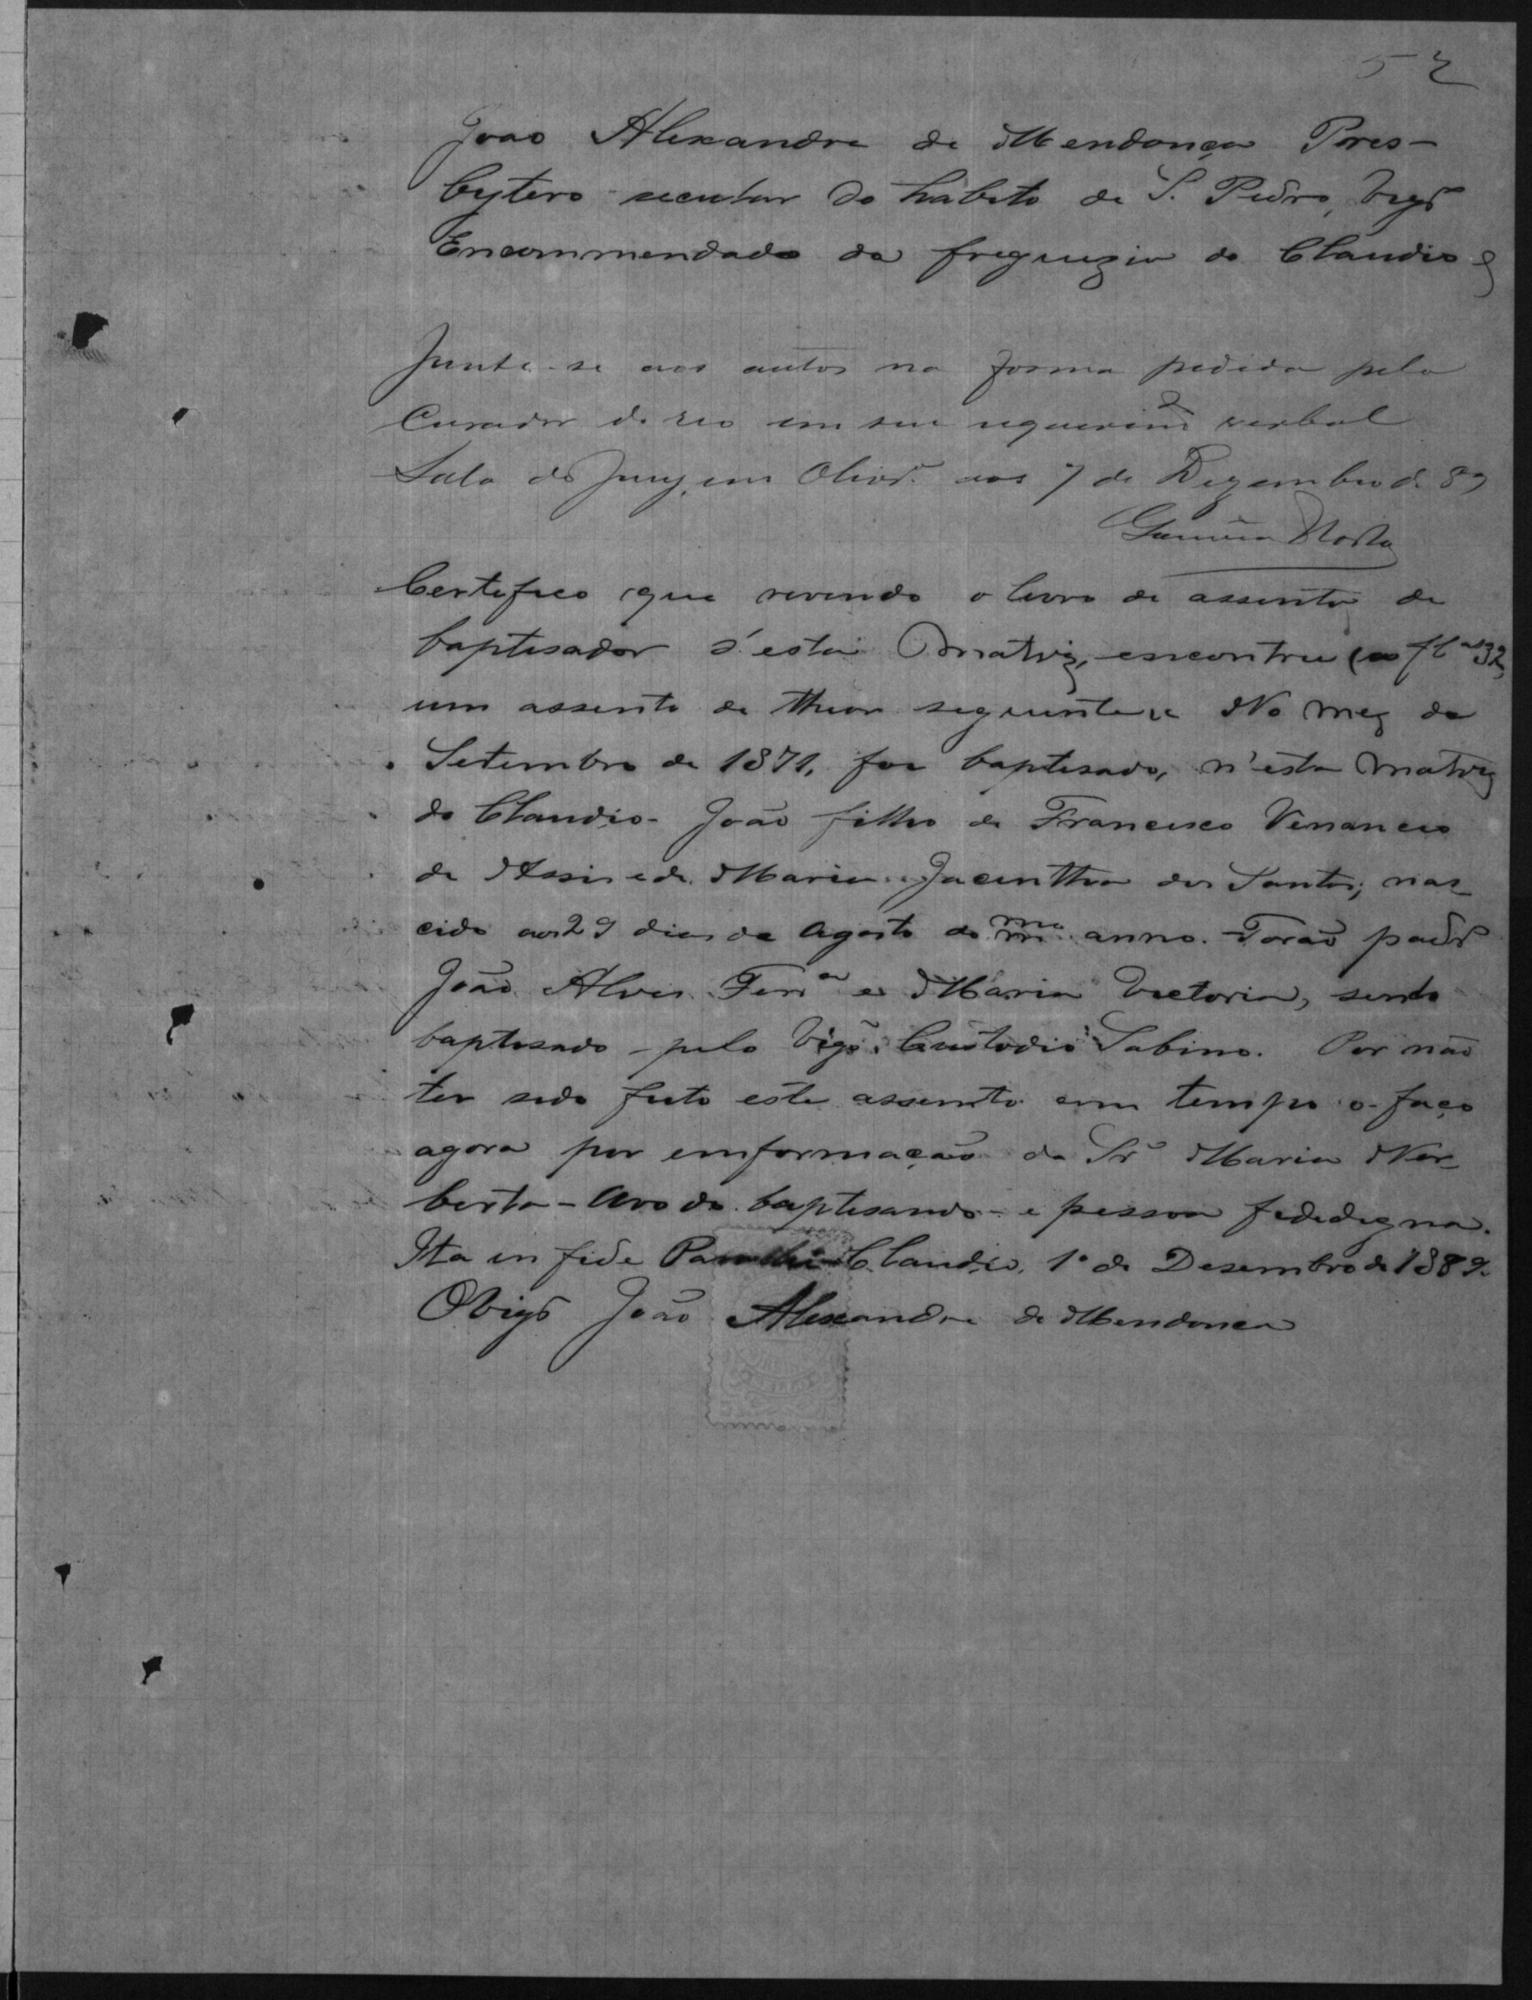 52
João Alexandre de Mendonça Pres-
bytero secular do habito de S. Pedro, Vigº
Encommendado da freguezia do Claudio &
Junte-se aos autos na forma pedida pelo
Curador do reo em seu requerimº verbal
Sala do Jury, em Olivrª aos 7 de Dezembro de 89
Certefico que revendo o livro de assento de
baptisados d'esta Matriz, encontrei a fl 32,
um assento de theor seguinte: No mez de
Setembro de 1871, foi baptisado, n'esta Matriz
do Claudio - João filho de Francisco Venancio
de Assis e de Maria Jacintha dos Santos, nas
cido aos 29 dias de Agosto do mmo anno. Forão padrº
João Alves Ferrª e Maria Victoria, sendo
baptisado pelo Vigº Custodio Sabino. Por não
ter sido feito este assento em tempo o faço
agora por emformação da Srª Maria Nor
berta - Avo do baptisando - e pessoa fidedigna.
Ita in fide Claudio, 1º de Desembro de 1889.
O Vigº João Alexandre de Mendonca